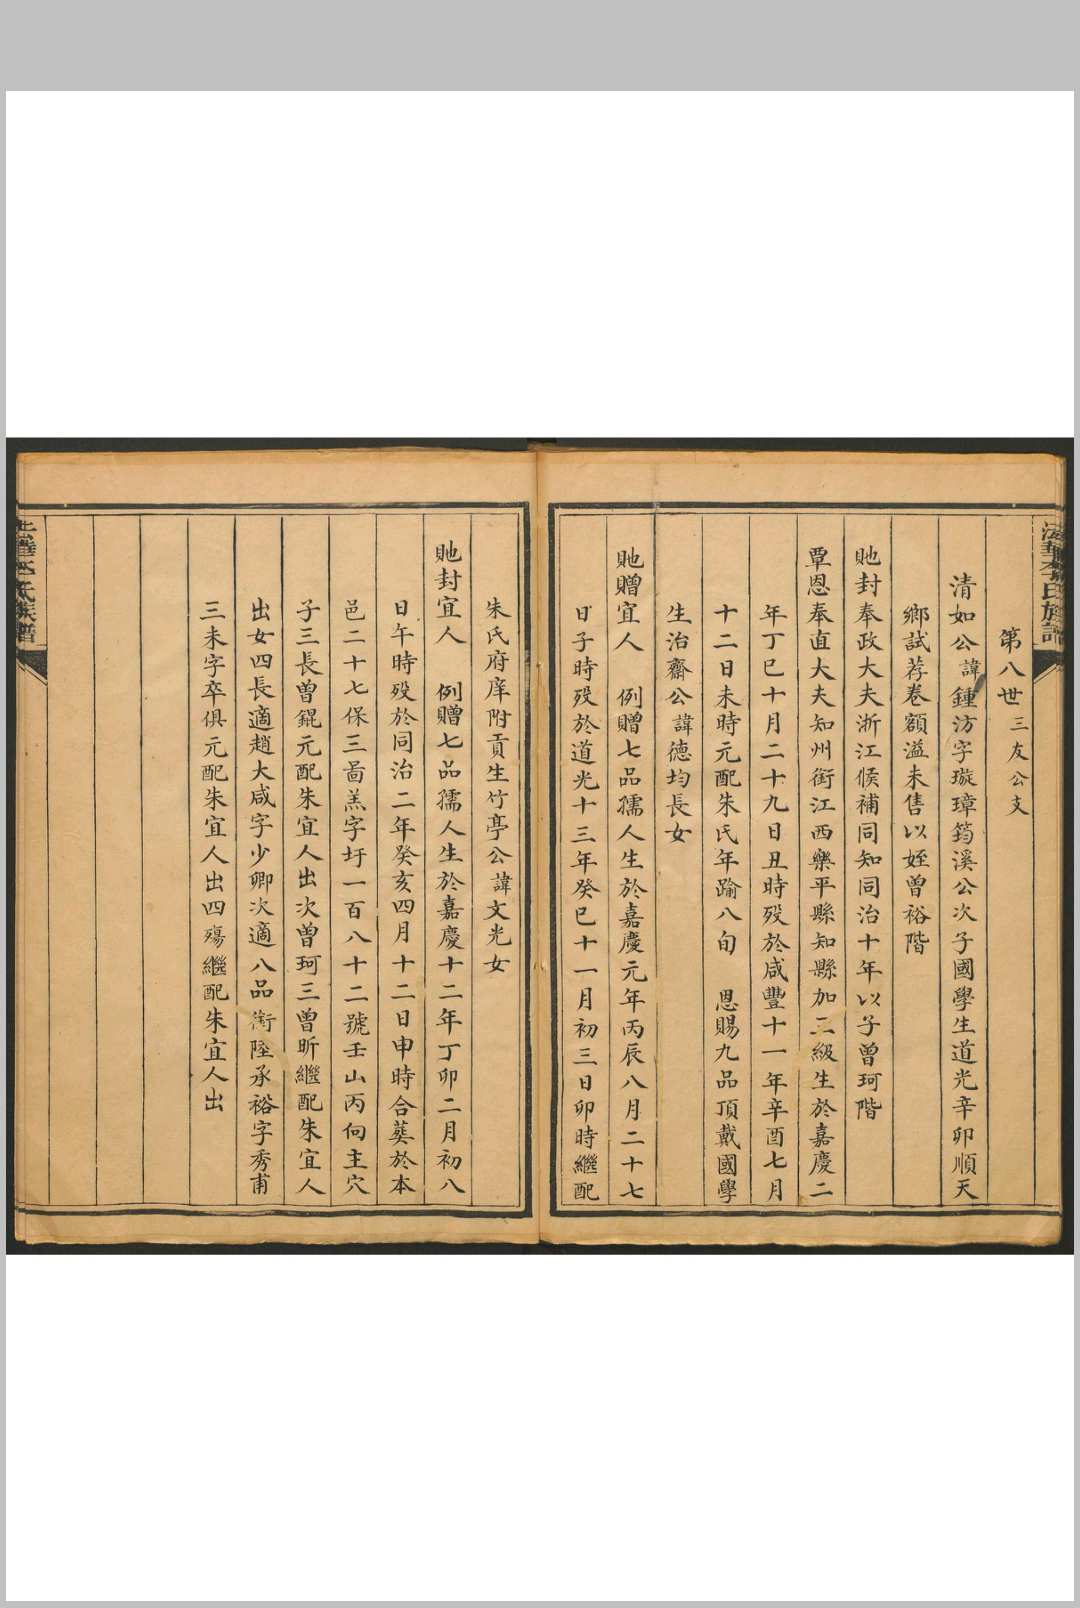 法華李氏族譜
第八世三友公支
清如公諱鍾汸字璇璋筠溪公次子國學生道光辛卯順天
鄉試荐卷額溢未售以姪曾裕階
貤封奉政大夫浙江候補同知同治十年以子曾珂階
覃恩奉直大夫知州銜江西樂平縣知縣加二級生於嘉慶二
年丁巳十月二十九日丑時歿於咸豐十一年辛酉七月
十二日未時元配朱氏年踰八旬 恩賜九品頂戴國學
生治齋公諱德均長女
貤贈宜人 例贈七品孺人生於嘉慶元年丙辰八月二十七
日子時歿於道光十三年癸巳十一月初三日卯時繼配
朱氏府庠附貢生竹亭公諱文光女
貤封宜人 例贈七品孺人生於嘉慶十二年丁卯二月初八
日午時歿於同治二年癸亥四月十二日申時合葬於本
邑二十七保三啚羔字圩一百八十二號壬山丙向主穴
子三長曾錕元配朱宜人出次曾珂三曾昕繼配朱宜人
出女四長適趙大咸字少卿次適八品銜陸承裕字秀甫
三未字卒俱元配朱宜人出四殤繼配朱宜人出
法華李氏族譜